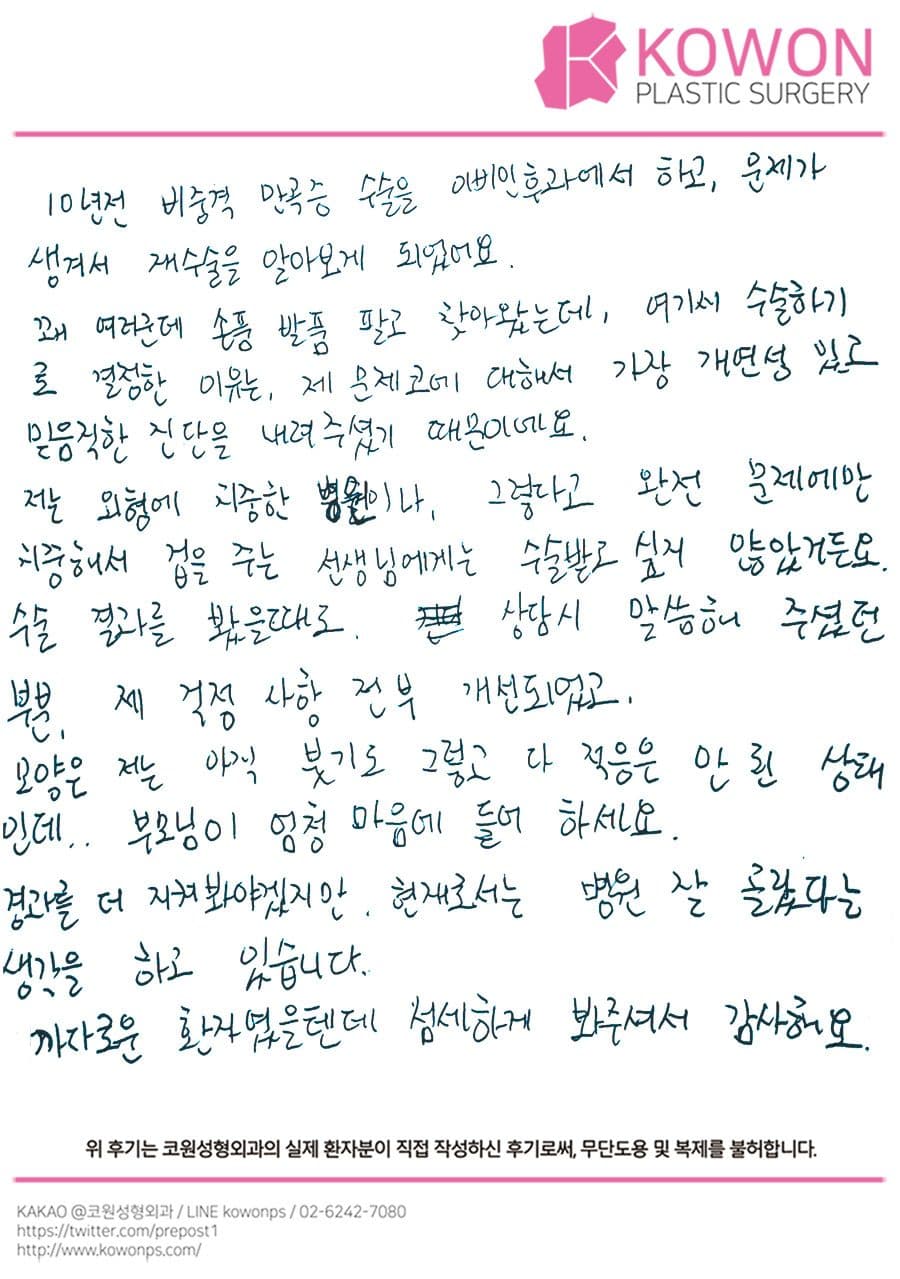 KOWON
PLASTIC SURGERY
10년전 비중격 만곡증 수술을 이비인후과에서 하고, 문제가
생겨서 재수술을 알아보게 되었어요.
꽤 여러군데 손품 발품 팔고 찾아왔는데, 여기서 수술하기
로 결정한 이유는, 제 문제 코에 대해서 가장 개연성 있고
믿음직한 진단을 내려주셨기 때문이에요.
저는 외형에 치중한 병원이나, 그렇다고 완전 문제에만
치중해서 겁을 주는 선생님에게는 수술받고 싶지 않았거든요.
수술 결과를 봤을때도. 상담시 말씀해 주셨던
부분, 제 걱정 사항 전부 개선되었고,
모양은 저는 아직 붓기도 그렇고 다 적응은 안 된 상태
인데.. 부모님이 엄청 마음에 들어 하세요.
경과를 더 지켜봐야겠지만, 현재로서는 병원 잘 골랐다는
생각을 하고 있습니다.
까다로운 환자였을텐데 섬세하게 봐주셔서 감사해요.
위 후기는 코원성형외과의 실제 환자분이 직접 작성하신 후기로써, 무단도용 및 복제를 불허합니다.
KAKAO @코원성형외과 / LINE kowonps / 02-6242-7080
https://twitter.com/prepost1
http://www.kowonps.com/